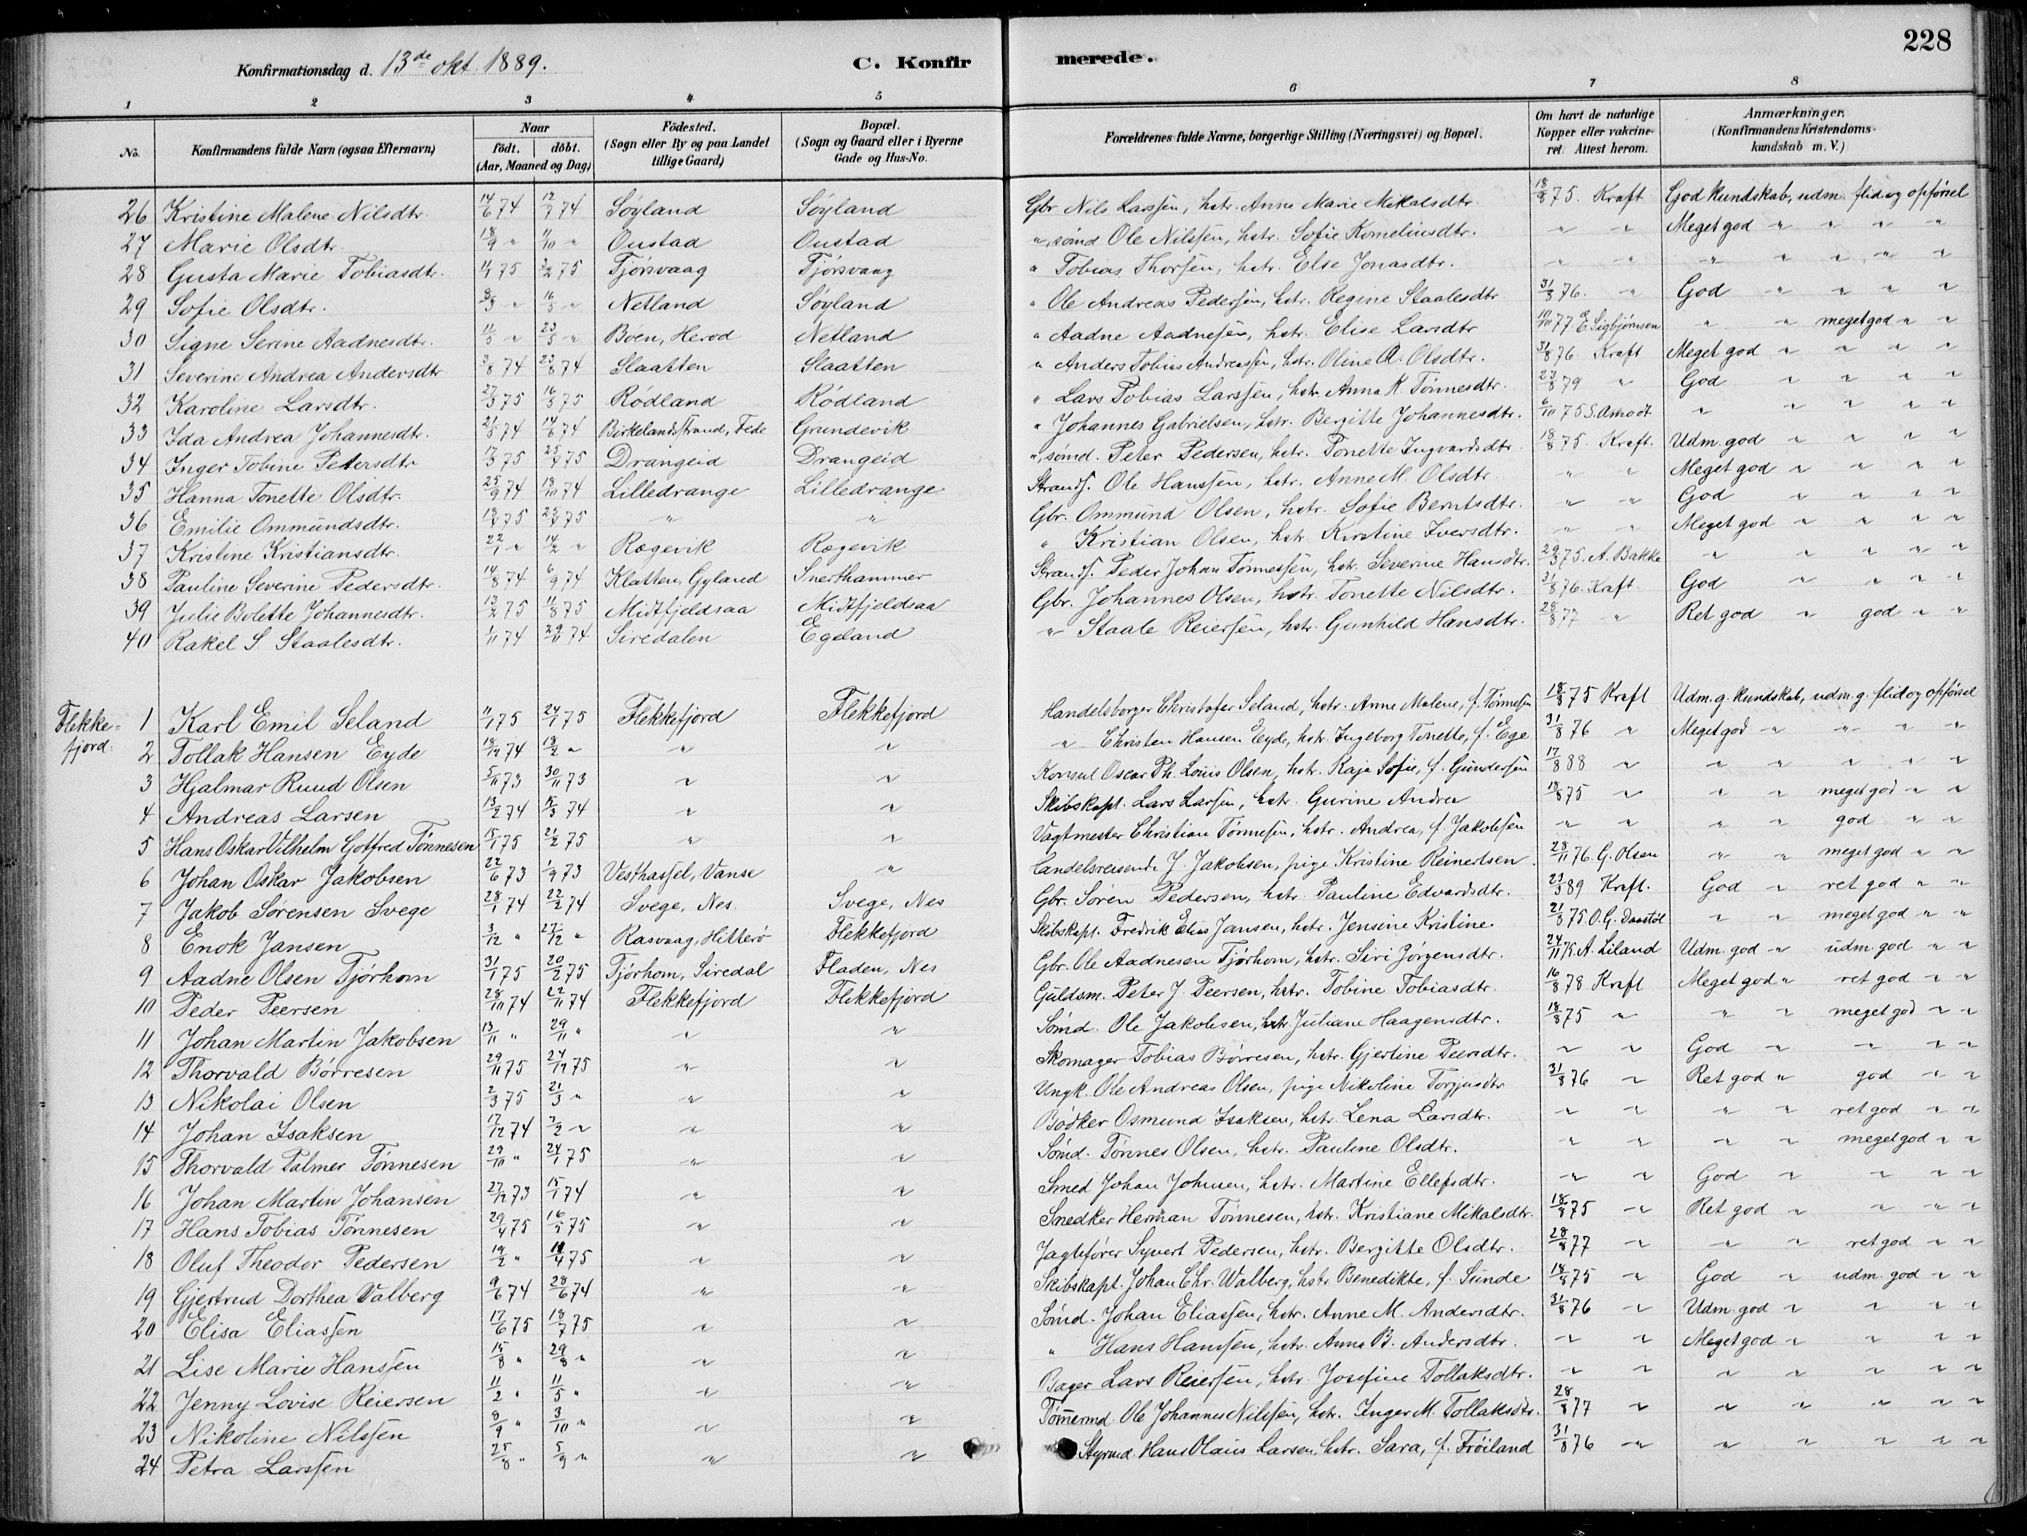 228
Konfirmationsdag d. 13de okt. 1889.
C. Konfirmerede.
1 2 3 4 5 6 7 8
No. Konfirmandens fulde Navn (ogsaa Efternavn) Naar født. døbt. (Aar, Maaned og Dag) Fødested. (Sogn eller By og paa Landet tillige Gaard) Bopæl. (Sogn og Gaard eller i Byerne Gade og Hus-No. Forældrenes fulde Navne, borgerlige Stilling (Næringsvei) og Bopæl. Om havt de naturlige Kopper eller vakcineret. Attest herom. Anmærkninger. (Konfirmandens Kristendomskundskab m. V.)
26 Kristine Malene Nilsdtr. 14/6 74 12/7 74 Søyland Søyland Gbr. Nils Larssen, hstr. Anne Marie Mikalsdtr. 18/8 75. Kraft God kundskab, udm. flid og opførsel
27 Marie Olsdtr. 18/9 " 11/10 " Oustad Oustad ", sømd Ole Nilssen, hstr. Sofie Korneliusdtr. " " Meget god " " " "
28 Gusta Marie Tobiasdtr. 1/1 75 2/2 75 Tjørsvaag Tjørsvaag " Tobias Thorsen, hstr. Else Jonasdtr. " " " " " " "
29 Sofie Olsdtr. 8/3 " 16/3 " Netland Søyland " Ole Andreas Pedersen, hstr. Regine Staalesdtr. 31/8 76. " God " " " "
30 Signe Serine Aadnesdtr. 11/5 " 23/5 " Boen, Herod Netland " Aadne Aadnesen, hstr. Elise Larsdtr 10/10 77 E. Sigbjørnsen " " meget god " "
31 Severine Andrea Andersdtr 3/8 74 23/8 74 Slaatten Slaatten " Anders Tobias Andreassen, hstr. Oline A. Olsdtr. 31/8 76 Kraft Meget god " " " "
32 Karoline Larsdtr. 27/3 75 16/5 75 Rødland Rødland " Lars Tobias Larssen, hstr. Anna K. Tønnesdtr. 23/8 79 " God " " " "
33 Ida Andrea Johannesdtr. 21/5 74 14/6 74 Birkelandstrand, Fede Grundevik " Johannes Gabrielsen, hstr. Bergitte Johannesdtr. 6/10 75 S. Amodt " " " " "
34 Inger Tobine Petersdtr 17/3 75 25/4 75 Drangeid Drangeid ", sømd. Peter Pedersen, hstr. Tonette Ingvardsdtr. 18/8 75. Kraft. Udm. god " " " "
35 Hanna Tonette Olsdtr. 25/9 74 18/10 74 Lilledrange Lilledrange Strands. Ole Hanssen, hstr. Anne M. Olsdtr " " Meget god " " " "
36 Emilie Ommundsdtr. 75 75 " " Gbr. Ommund Olsen, hstr. Sofie Berntsdtr. " " God " " " "
37 Kristine Kristiansdtr. 22/1 " 14/2 " Rægevik Rægevik " Kristian Olsen, hstr. Kirstine Iversdtr. " " Meget god " " " "
38 Pauline Severine Pedersdtr. 14/8 74 6/9 74 Klatten, Gyland Snerthammer Strands. Peder Johan Tønnessen, hstr. Severine Hansdtr. 75. A. Bakke " " " " "
39 Julie Bolette Johannesdtr. 13/2 75 11/8 75 Midtfjeldsaa Midtfjeldsaa Gbr. Johannes Olsen, hstr. Tonette Nilsdtr. 31/8 76. Kraft. God " " " "
40 Rakel S Staalesdtr. 1/11 74 29/11 74 Siredalen Egeland " Staale Reiersen, hstr. Gunhild Hansdtr. 28/8 77 " Ret god " god " "
Flekkefjord.
1 Karl Emil Seland 11/1 75 24/1 75 Flekkefjord Flekkefjord Handelsborger Christofer Seland, hstr. Anne Malene, f. Tønnesen 18/8 75 Kraft Udm. g. kundskab, udm. g. flid og opførsel
2 Tollak Hansen Eyde 18/12 74 18/2 " " " " Christen Hansen Eyde, hstr. Ingeborg Tonette, f. Ege 31/8 76 " Meget god " " " "
3 Hjalmar Ruud Olsen 5/11 73 30/11 73 " " Konsul Oscar Ph. Louis Olsen, hstr. Kaja Sofie, f. Gundersen 17/8 88 " " " " " "
4 Andreas Larsen 13/2 74 15/3 74 " " Skibskapt. Lars Larsen, hstr. Gurine Andrea 18/8 75 " " " meget god " "
5 Hans Oskar Vilhelm Gotfred Tønnesen 15/1 75 21/2 75 " " Vagtmester Christian Tønnesen, hstr. Andrea, f. Jakobsen " " " " god " "
6 Johan Oskar Jakobsen 22/6 73 1/9 73 Vesthassel, Vanse " Handelsreisende J. Jakobsen, pige Kristine Reinertsen 28/11 76. G. Olsen " " meget god " "
7 Jakob Sørensen Svege 28/1 74 22/2 74 Svege, Nes Svege, Nes Gbr. Søren Pedersen, hstr. Pauline Edvardsdtr. 23/3 89 Kraft. God " ret god " "
8 Enok Jansen 3/12 " 27/12 " Rasvaag, Hitterø Flekkefjord Skibskapt. Fredrik Elias Jansen, hstr. Jensine Kristine 21/8 75 O. G. " " meget god " "
9 Aadne Olsen Tjørhom 31/1 75 20/2 75 Tjørhom, Siredal Fladen, Nes Gbr. Ole Aadnesen Tjørhom, hstr. Siri Jørgensdtr. A. Liland Udm. god " udm. god " "
10 Peder Peersen 28/10 74 22/11 74 Flekkefjord Flekkefjord Guldsm. Peter J. Peersen, hstr. Tobine Tobiasdtr. 16/8 78 Kraft Meget god " ret god " "
11 Johan Martin Jakobsen 13/11 " 29/11 " " " Sømd. Ole Jakobsen, hstr. Juliane Haagensdtr. 18/8 75 " " " meget god " "
12 Thorvald Børresen 29/11 75 24/12 75 " " Skomager Tobias Børresen, hstr. Gjertine Peersdtr. " " God " " " "
13 Nikolai Olsen 2/3 75 21/3 " " " Ungk. Ole Andreas Olsen, pige Nikoline Torjusdtr 31/8 76 " Ret god " god " "
14 Johan Isaksen 17/12 74 7/2 " " " Bødker Osmund Isaksen, hstr. Lena Larsdtr. " " " " ret god " "
15 Thorvald Talmer Tønnesen 29/10 " 24/1 75 " " Sømd. Tønnes Olsen, hstr. Pauline Olsdtr. " " " " meget god " "
16 Johan Martin Johansen 27/12 73 15/1 74 " " Smed Johan Johnsen, hstr. Martine Ellefsdtr. " " God " " " "
17 Hans Tobias Tønnesen 29/4 75 16/5 75 " " Snedker Herman Tønnesen, hstr. Kristiane Mikalsdtr. 18/8 75 " Ret god " " " "
18 Oluf Theodor Pedersen 19/2 " 4 75 " " Jagtefører Syvert Pedersen, hstr. Bergitte Olsdtr. 28/8 77 " " " ret god " "
19 Gjertrud Dorthea Valberg 9/6 74 28/6 74 " " Skibskapt. Johan Chr. Walberg, hstr. Benedikte, f. Sunde 18/8 75 " God " udm. god " "
20 Elisa Eliassen 17/6 75 18/7 75 " " Sømd. Johan Eliassen, hstr. Anne M. Andersdtr. 31/8 76 " Udm. god " " " "
21 Lise Marie Hanssen 15/8 " 29/8 " " " " Hans Hanssen, hstr. Anna B. Andersdtr. " " Meget god " " " "
22 Jenny Lovise Reiersen 11/2 " 11/5 " " " Bager Lars Reiersen, hstr. Josefine Tollaksdtr. " " " " " " "
23 Nikoline Nilssen 8/9 " 3/10 " " " Tømmermd Ole Johannes Nilssen, hstr. Inger M. Tollaksdtr. 28/8 77 " " " " " "
24 Petra Larssen 25/8 " 5/9 " " " Styrmd. Hans Olaus Larsen, hstr. Sara, f. Frøiland 31/8 76 " " " " " "